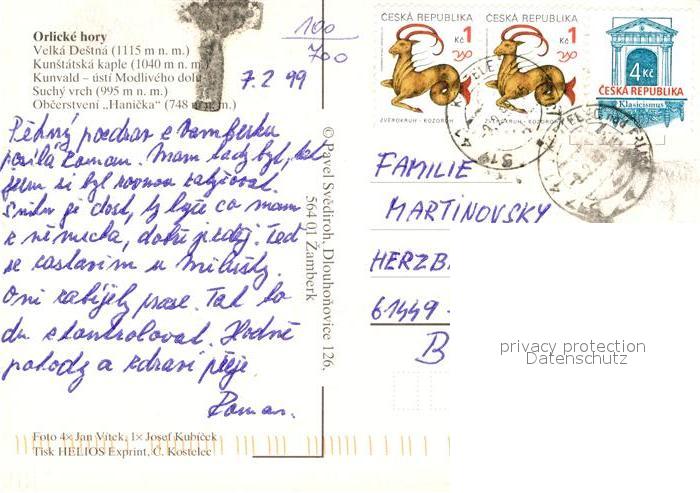 Orlické hory
Velká Deštná (1115 m n. m.)
Kunštátská kaple (1040 m n. m.)
Kunvald – ústí Modlivého dolu
Suchý vrch (995 m n. m.)
Občerstvení „Hanička“ (748 m n. m.)
100
700
7. 2. 99
Pěkný pozdrav z Vamberku
posílá Roman. Mam tady byt, tak
jsem si byl rovnou
Sněhu je dost, ty co mam
z německa, dobře jezděj. Teď
se zastavim u
Oni zabíjely prase. Tak to
du zkontrolovat. Hodně
pohody a zdraví přeje
Roman.
Foto 4× Jan Vítek, 1× Josef Kubíček
Tisk HELIOS Exprint, Č. Kostelec
© Pavel Svědiroh, Dlouhoňovice 126,
564 01 Žamberk
ČESKÁ REPUBLIKA
1
Kč
ZVĚROKRUH - KOZOROH
ČESKÁ REPUBLIKA
1
Kč
ZVĚROKRUH - KOZOROH
4 Kč
ČESKÁ REPUBLIKA
Klasicismus
517 41
FAMILIE
MARTINOVSKY
HERZB
61449
B
privacy protection
Datenschutz